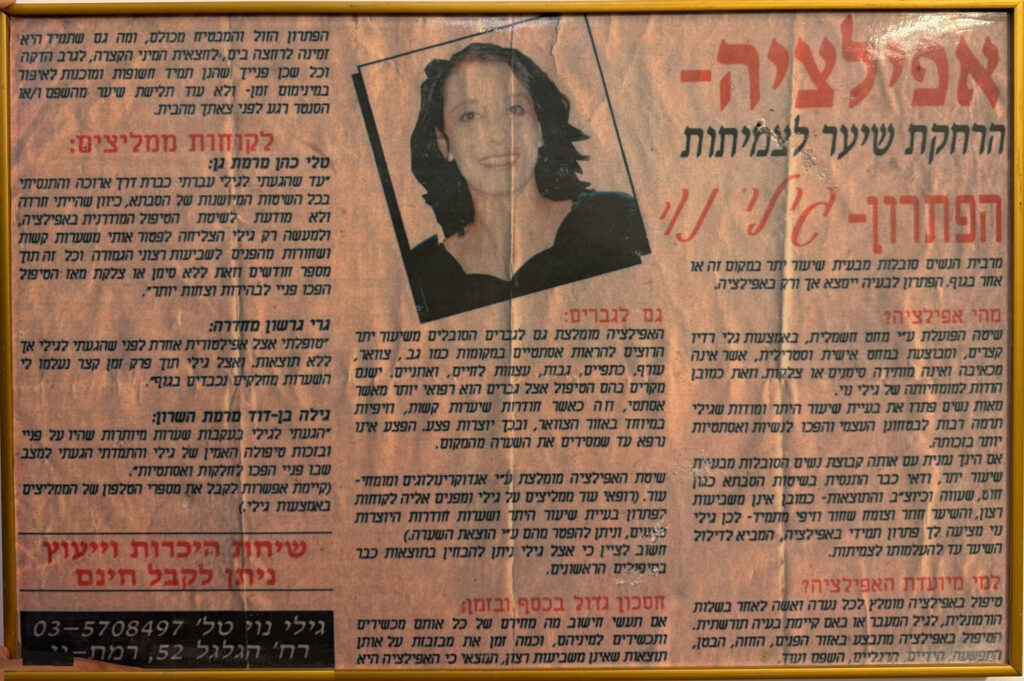 אפילציה-
הרחקת שיער לצמיתות
הפתרון- גילי נוי
מרבית הנשים סובלות מבעית שיעור יתר במקום זה או
אחר בגוף. הפתרון לבעיה יימצא אך ורק באפילציה.
מהי אפילציה?
שיטה הפועלת ע״י מחט חשמלית, באמצעות גלי רדיו
קצרים, ומבוצעת במחט אישית וסטרילית, אשר אינה
מכאיבה ואינה מותירה סימנים או צלקות. וזאת כמובן
הודות למומחיותה של גילי נוי.
מאות נשים פתרו את בעיית שיעור היתר ומודות שגילי
תרמה רבות לבטחונן העצמי והפכו לנשיות ואסתטיות
יותר בזכותה.
אם הינך נמנית עם אותה קבוצת נשים הסובלות מבעית
שיעור יתר, ודאי כבר התנסית בשיטות הסבתא כגון
חוט, שעווה וכיוצ״ב והתוצאות- כמובן אינן משביעות
רצון, והשיער חוזר וצומח שחור וזיפי מתמיד- לכן גילי
נוי מציעה לך פתרון תמידי באפילציה, המביא לדילול
השיער עד להעלמותו לצמיתות.
למי מיועדת האפילציה?
טיפול באפילציה מומלץ לכל נערה ואשה לאחר בשלות
הורמונלית, לגיל המעבר או באם קיימת בעיה תורשתית.
הטיפול באפילציה מתבצע באזור הפנים, החזה, הבטן,
המפשעה, הידיים, הרגליים, השפם ועוד.
גם לגברים:
האפילציה מומלצת גם לגברים הסובלים משיעור יתר
הרוצים להראות אסתטיים במקומות כמו גב, צוואר,
עורף, כתפיים, גבות, עצמות לחיים, ואוזניים. ישנם
מקרים בהם הטיפול אצל גברים הוא רפואי יותר מאשר
אסתטי, וזה כאשר חודרות שיערות קשות, וזיפיות
במיוחד באזור הצוואר, ובכך יוצרות פצע. הפצע אינו
נרפא עד שמסירים את השערה מהמקום.
שיטת האפילציה מומלצת ע״י אנדוקרינולוגים ומומחי-
עור. (רופאי עור ממליצים על גילי ומפנים אליה לקוחות
לפתרון בעיית שיעור היתר ושערות חודרות היוצרות
פצעים, וניתן להפטר מהם ע״י הוצאת השערה.)
חשוב לציין כי אצל גילי ניתן להבחין בתוצאות כבר
בטיפולים הראשונים.
חסכון גדול בכסף ובזמן:
אם תעשי חישוב מה מחירם של כל אותם מכשירים
ותכשירים למיניהם, וכמה זמן את מבזבזת על אותן
תוצאות שאינן משביעות רצון, תמצאי כי האפילציה היא
הפתרון הזול והמבטיח מכולם, ומה גם שתמיד היא
זמינה לרחצה בים, לחצאית המיני הקצרה, לגרב הדקה
וכל שכן פנייך שהנן תמיד חשופות ומוכנות לאיפור
במינימום זמן- ולא עוד תלישת שיער מהשפם ו/או
הסנטר רגע לפני צאתך מהבית.
לקוחות ממליצים:
טלי כהן מרמת גן:
״עד שהגעתי לגילי עברתי כברת דרך ארוכה והתנסיתי
בכל השיטות המיושנות של הסבתא, כיוון שהייתי חרדה
ולא מודעת לשיטת הטיפול המודרנית באפילציה,
ולמעשה רק גילי הצליחה לפטור אותי משערות קשות
ושחורות מהפנים לשביעות רצוני הגמורה וכל זה תוך
מספר חודשים וזאת ללא סימן או צלקת מאז הטיפול
הפכו פניי לבהירות וצחות יותר״.
גרי גרשון מחדרה:
״טופלתי אצל אפילטורית אחרת לפני שהגעתי לגילי אך
ללא תוצאות, ואצל גילי תוך פרק זמן קצר נעלמו לי
השערות מחלקים נכבדים בגוף״.
גילה בן-דוד מרמת השרון:
״הגעתי לגילי בעקבות שערות מיותרות שהיו על פניי
ובזכות טיפולה האמין של גילי והתמדתי הגעתי למצב
שבו פניי הפכו לחלקות ואסתטיות״.
(קיימת אפשרות לקבל את מספרי הטלפון של הממליצים
באמצעות גילי.)
שיחת היכרות וייעוץ
ניתן לקבל חינם
גילי נוי טל׳ 03-5708497
רח׳ הגלגל 52, רמת-